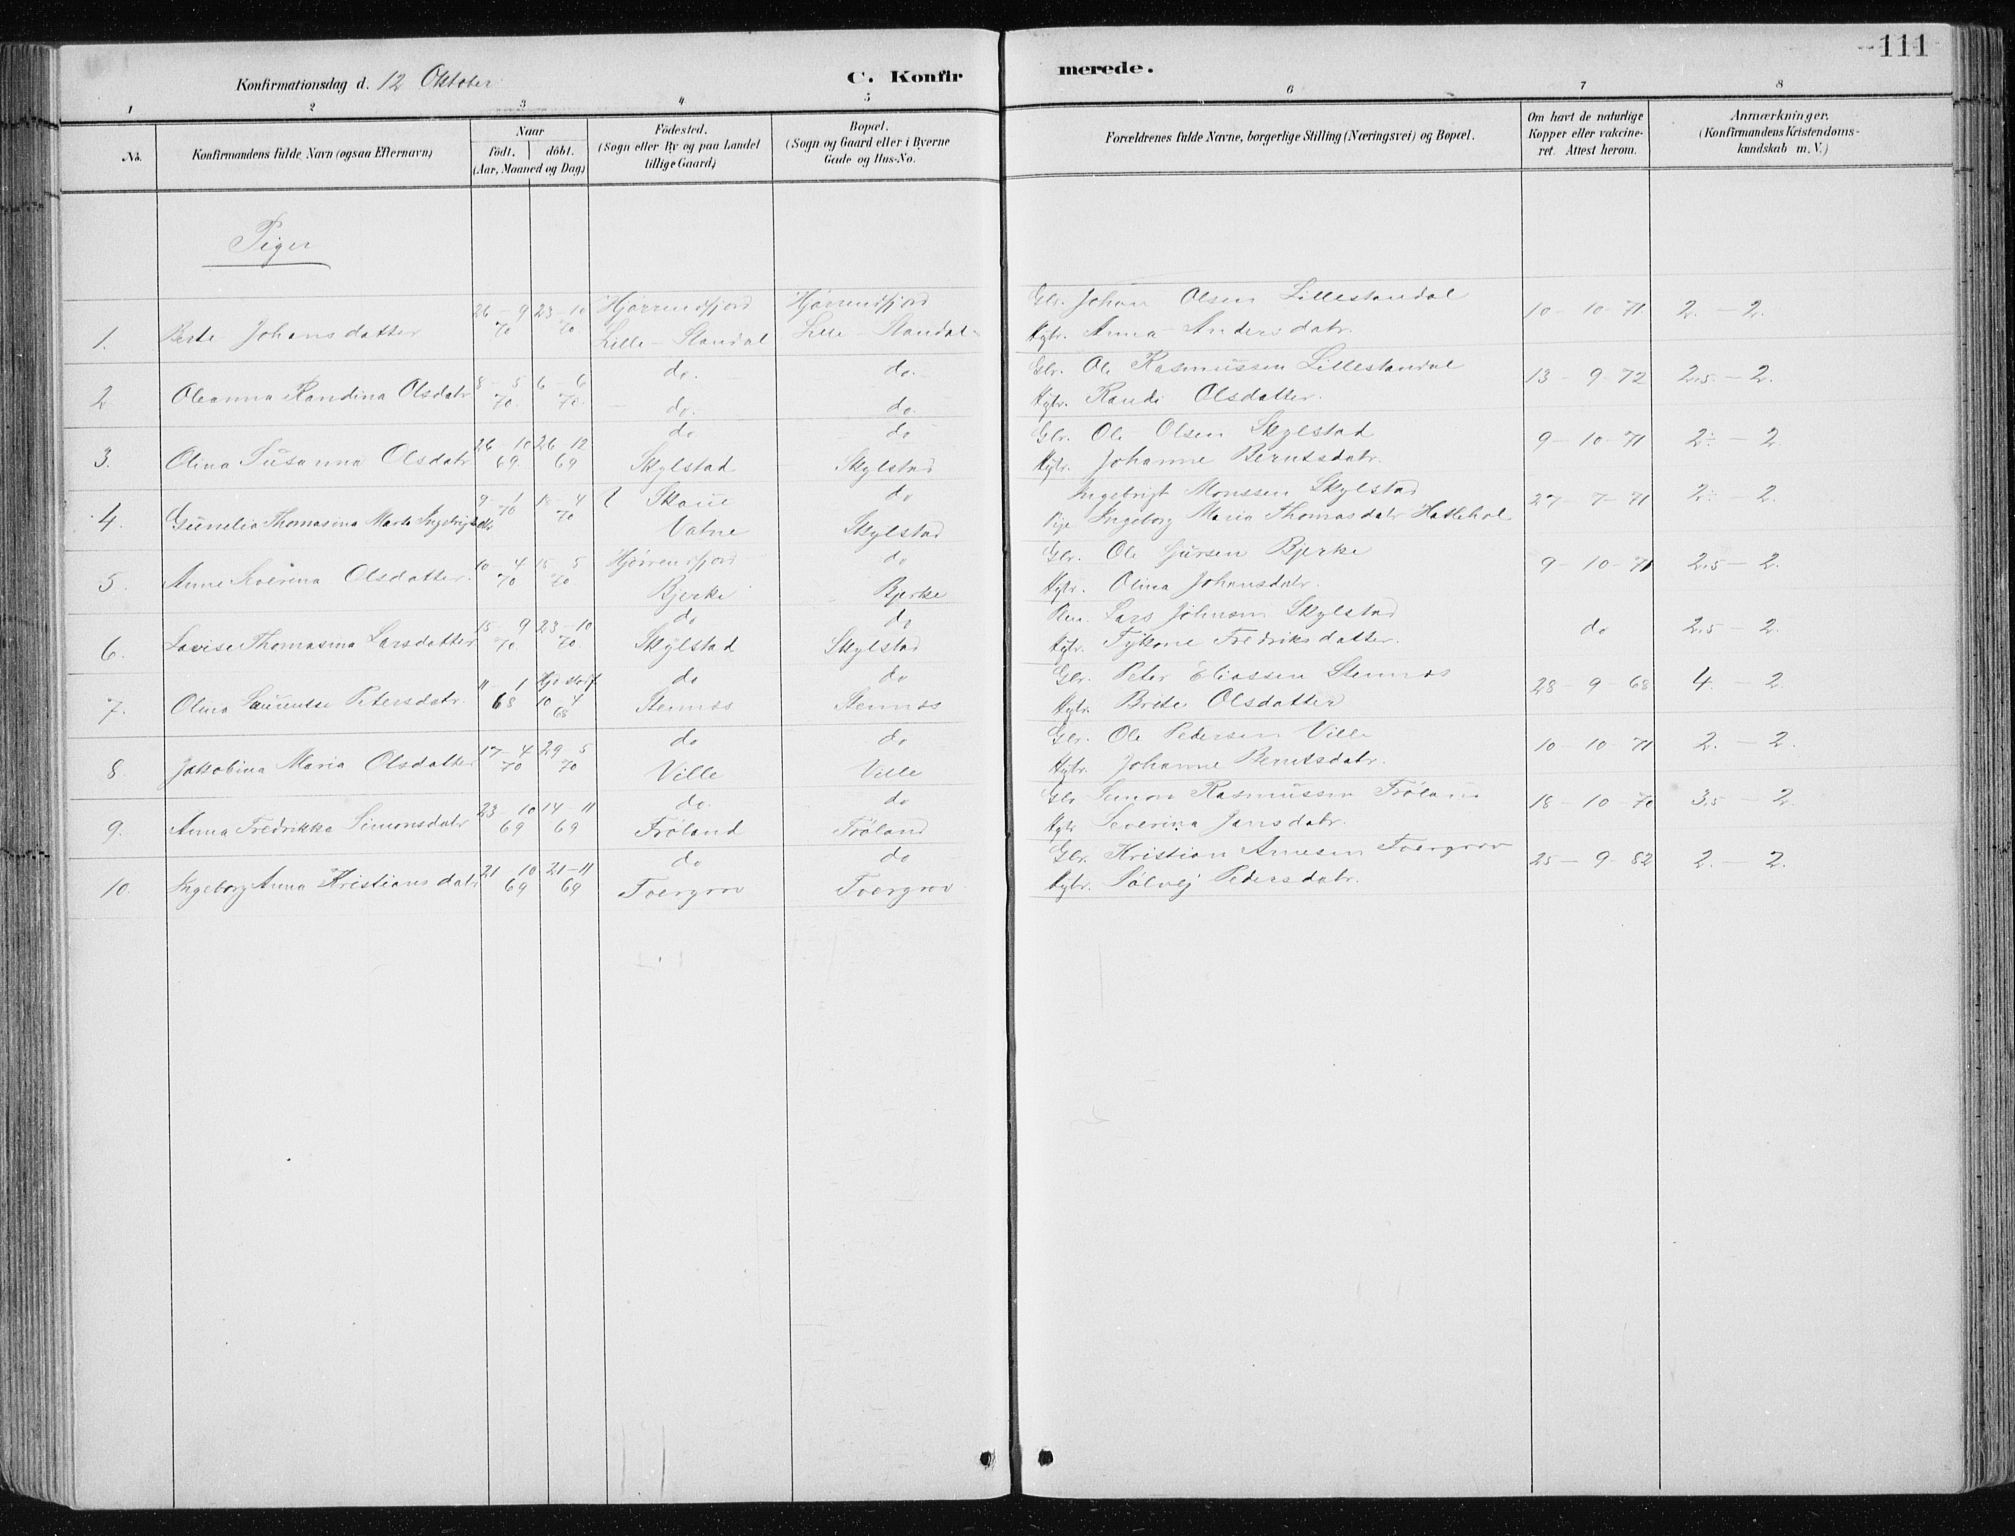 111
Konfirmationsdag d. 12 Oktober
C. Konfirmerede.
1 2 3 4 5 6 7 8
No. Konfirmandens fulde Navn (ogsaa Efternavn) Naar født. døbt. (Aar, Maaned og Dag) Fødested. (Sogn eller By og paa Landet tillige Gaard) Bopæl. (Sogn og Gaard eller i Byerne Gade og Hus-No. Forældrenes fulde Navne, borgerlige Stilling (Næringsvei) og Bopæl. Om havt de naturlige Kopper eller vakcineret. Attest herom. Anmærkninger. (Konfirmandens Kristendomskundskab m. V.)
Piger
26-9 23-10 Hjørrendfjord Hjørrendfjord Gbr. Johan Olsen Lillestandal
1. Johansdatter 70 70 Lille-Standal Lille-Standal Hstr. Anna Andersdatr. 10-10-71 2.-2.
8-5 6-6 do. do. Gbr. Ole Rasmussen Lillestandal
2 Oleanna Randina Olsdatr 70. 70. do. do. Hstr. Randi Olsdatter. 13-9-72 2.5-2.
26-10 26-12 do do Gbr. Ole Olsen Skylstad
3. Olina Susanna Olsdatr 69. 69 Skylstad Skylstad Hstr. Johanne Berntsdatr. 9-10-71 2÷-2
9-1 18-4 Skoue do Ingebrigt Monssen Skylstad
4. Gunelia Thomasina Marte 70 70 Vatne Skylstad Pige Ingeborg Maria Thomasdatr Hattehol 27-7-71 2÷-2.
10-4 15-5 Hjørrendfjord do Gbr. Ole Bjerke
5. Anne Severina Olsdatter. 70 70. Bjerke Bjerke Hstr. Olina Johansdatr. 9-10-71 2.5-2.
15-9 23-10 do do Lars Johnsen Skylstad
6. Lovise Thomasina Larsdatter 70. 70 Skylstad Skylstad Hstr. Fredriksdatter. do 2.5-2.
11-1 do do Gbr. Peter Eliassen Stennes
7. Olina Petersdatr. 68 10 4 68 Stennes Stennes Hstr. Brite Olsdatter 28-9-68 4.-2.
17-4 29 5 do do Gbr. Ole Pedersen Ville
8 Jakobina Maria Olsdatter 70 70 Ville Ville Hstr. Johanne Berntsdatr. 10-10-71 2.-2.
23-10 14-11 do. do Gbr Simon Rasmussen Frøland
9. Anna Fredrikke Simonsdatr 69 69 Frøland Frøland Hstr Severina Jansdatr. 18-10-70 3.5-2.
21 10 21-11 do do Gbr. Kristian Arnesen
10. Ingeborg Anna Kristiansdatr 69 69 Hstr. Sølvej Pedersdatr. 25-9-82 2.-2.